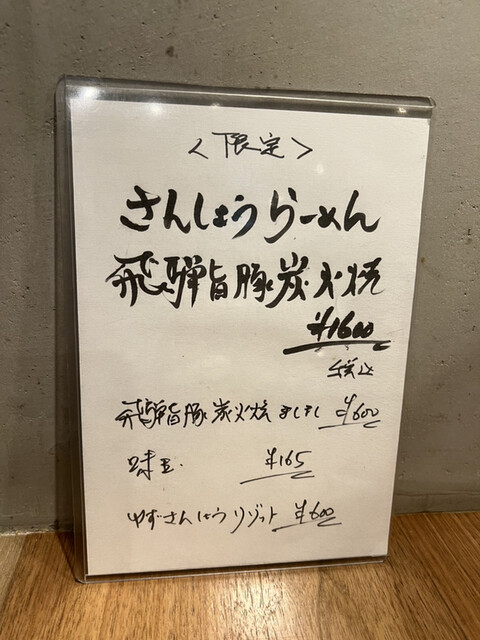 <限定>
さんしょうらーめん
飛騨旨豚炭火焼
¥1600
税込
飛騨旨豚炭火焼ましまし ¥600
味玉 ¥165
ゆずさんしょうリゾット ¥600